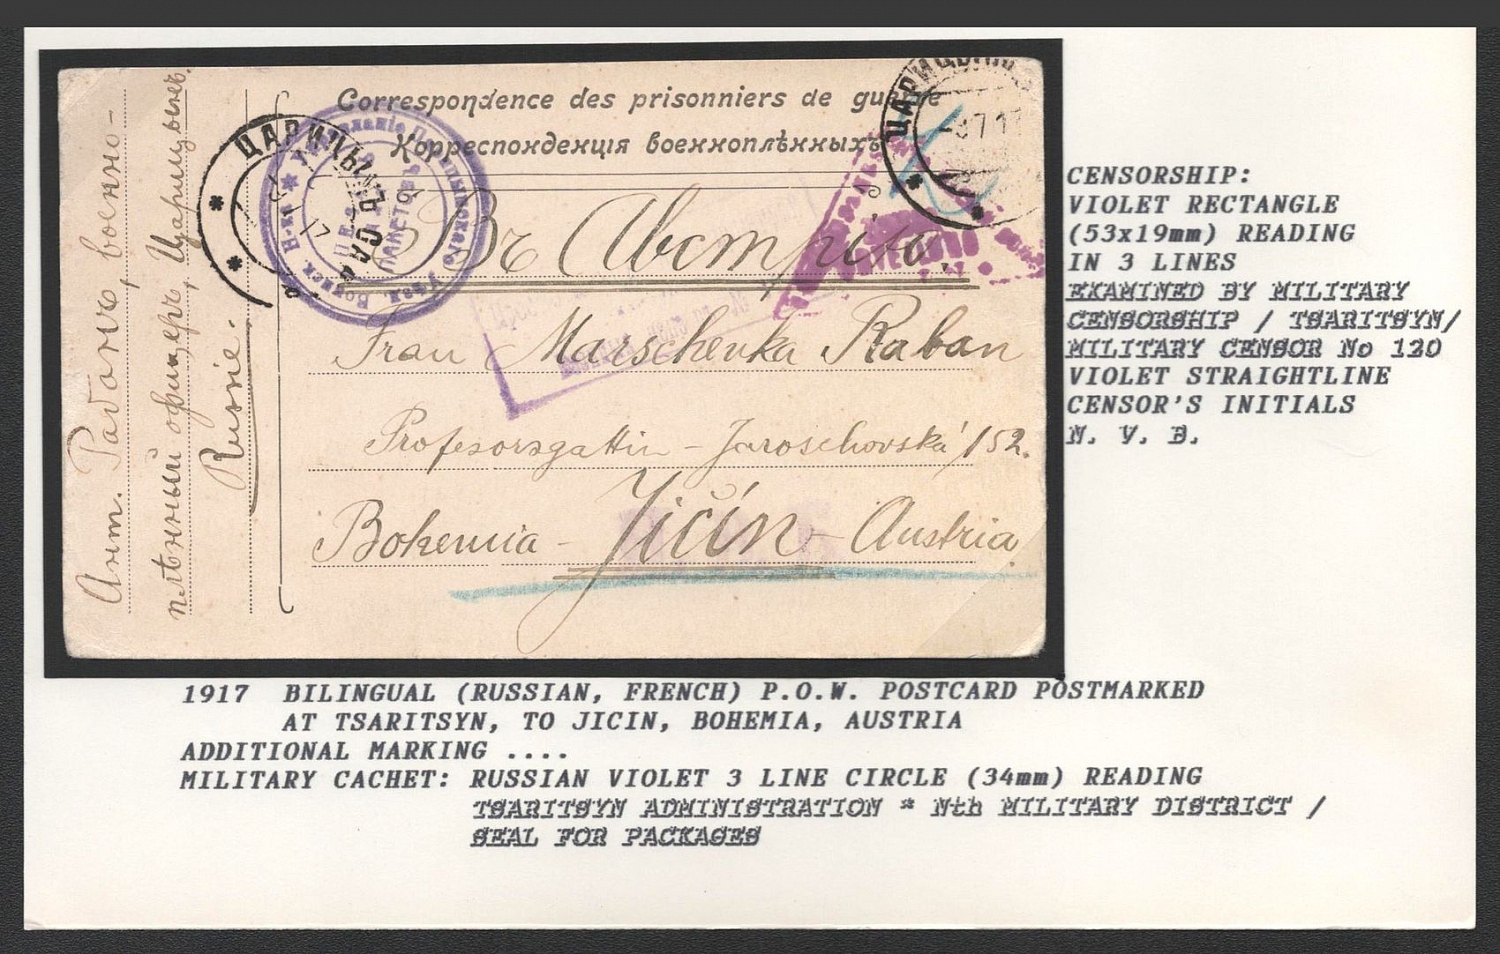 Correspondence des prisonniers de guerre
Корреспонденція военноплѣнныхъ
ЦАРИЦЫНЪ
ЦАРИЦЫНЪ
ПАКЕТОВЪ
Въ Австрію.
Frau Marschenka Raban
Profesorsgattin - Jaroschovská 152.
Bohemia - Jičín - Austria
Ант. Рабанъ, военно-
плѣнный офицеръ, Царицынъ.
Russie.
CENSORSHIP:
VIOLET RECTANGLE
(53x19mm) READING
IN 3 LINES
EXAMINED BY MILITARY
CENSORSHIP / TSARITSYN/
MILITARY CENSOR No 120
VIOLET STRAIGHTLINE
CENSOR'S INITIALS
N. V. B.
1917 BILINGUAL (RUSSIAN, FRENCH) P.O.W. POSTCARD POSTMARKED
AT TSARITSYN, TO JICIN, BOHEMIA, AUSTRIA
ADDITIONAL MARKING ....
MILITARY CACHET: RUSSIAN VIOLET 3 LINE CIRCLE (34mm) READING
TSARITSYN ADMINISTRATION * Nth MILITARY DISTRICT /
SEAL FOR PACKAGES